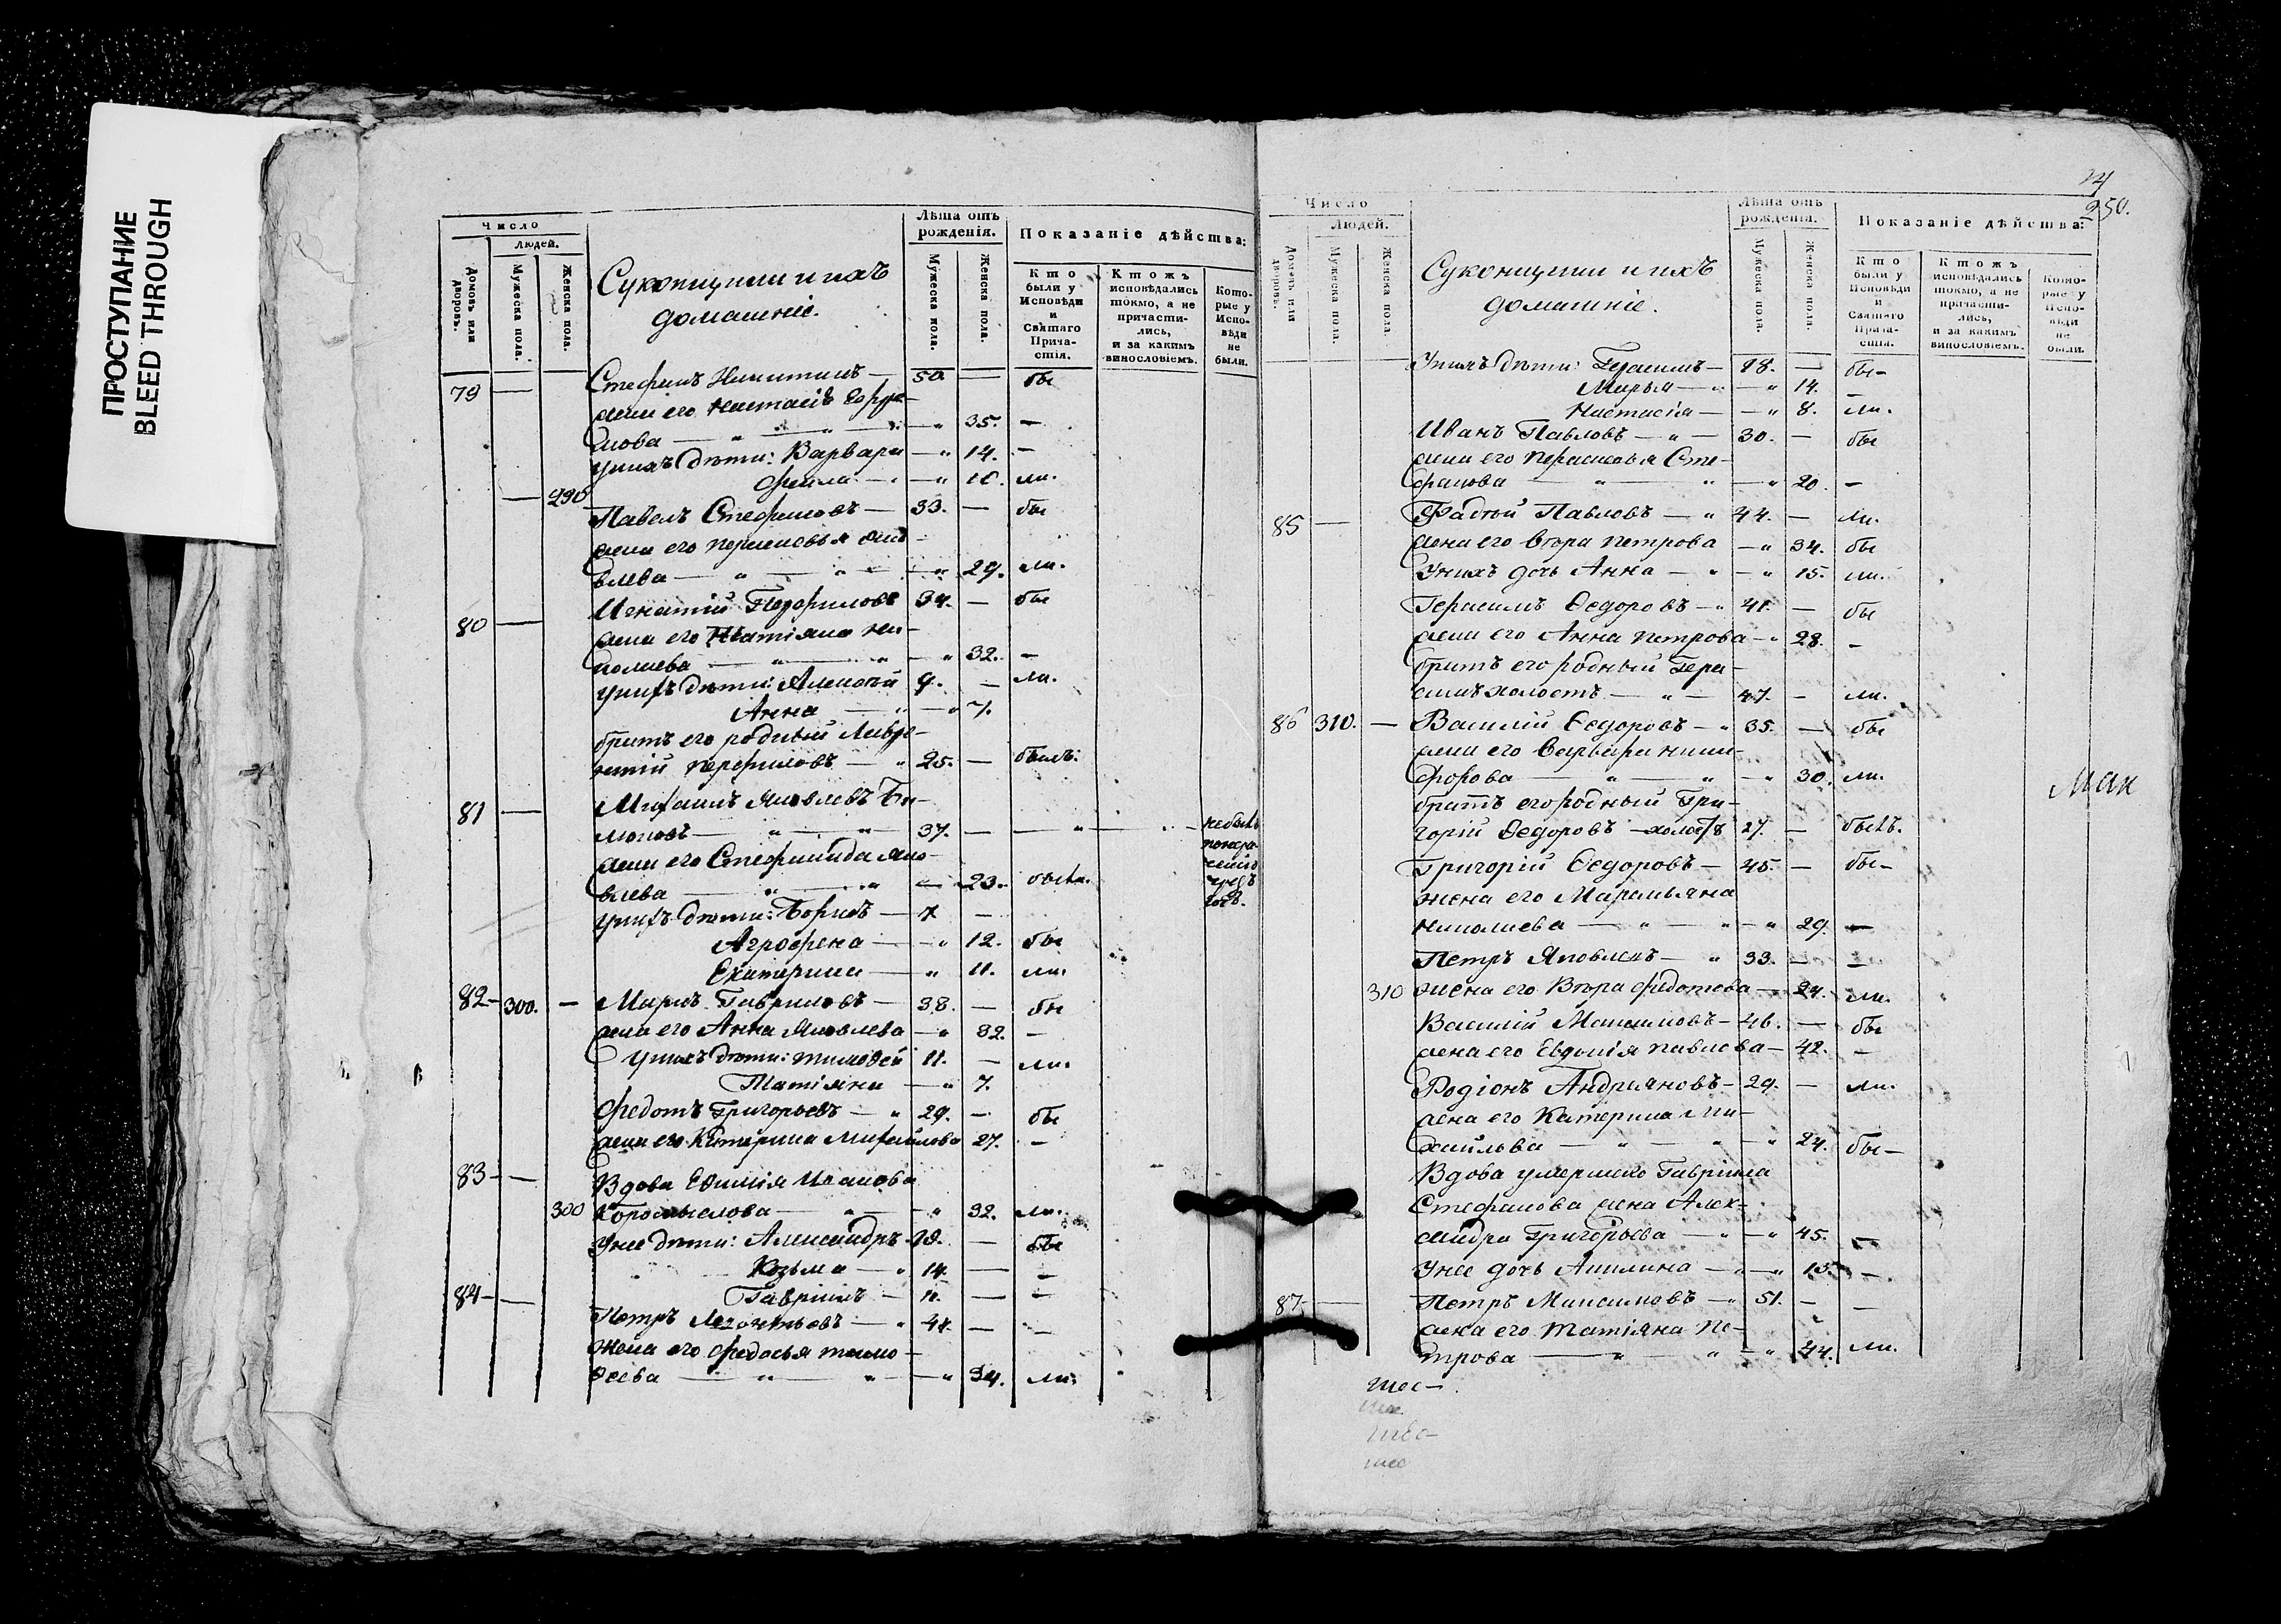 ПРОСТУПАНИЕ
BLEED THROUGH
Число
Людей.
Домовъ или дворовъ.
Мужеска пола.
Женска пола.
Суконщики и ихъ
домашніе.
Лѣта отъ
рожденія.
Мужеска пола.
Женска пола.
Показаніе дѣйства:
Кто
были у
Исповѣди
и
Святаго
Прича-
стія.
Ктожъ
исповѣдались
токмо, а не
причасти-
лись,
и за какимъ
винословіемъ.
Кото-
рые у
Испо-
вѣди
не
были.
79 — Стефанъ Никитинъ — 50. — бы
жена его Настасія
— " — " — " 35. —
у нихъ дѣти: Варвара — " 14. —
— " 10. ли.
— 290
Павелъ Стефановъ — 33. — бы
жена его Парасковья Яко-
влева — " — " — " 29. ли.
80 — Игнатій Перфиловъ 34. — бы
жена его Татіяна Ни-
колаева — " — " — " 32. —
у нихъ дѣти: Алексѣй 9. — ли.
Анна — " — " 7.
братъ его родный Лавре-
нтій Перфиловъ — " 25. — былъ.
81 — Михаилъ Яковлевъ
— " — " 37. — — " — не былъ
жена его Стефанида Яко-
влева — " — " — 23. была.
у нихъ дѣти: Борисъ — 7. —
Агрофена — " 12. бы
Екатерина — " 11. ли.
82 — 300. — Марко Гавриловъ — 38. — бы
жена его Анна Яковлева — " 32. —
у нихъ дѣти: Тимофей 11. — ли.
Татіяна — " 7.
Федотъ Григорьевъ — " 29. — бы
жена его Катерина Михайлова 27. —
83 — Вдова Евфимія Иванова
300 Коромыслова — " — " 32. ли.
У нее дѣти: Александръ 19. — бы
Козьма — " 14. — —
Гавріилъ — 11. — —
84 — — Петръ Леонтьевъ — " 41. — —
Жена его Федосья Тимо-
ѳеева — " — " — " 34. ли.
250.
Число
Людей.
Домовъ или дворовъ.
Мужеска пола.
Женска пола.
Суконщики и ихъ
домашніе.
Лѣта отъ
рожденія.
Мужеска пола.
Женска пола.
Показаніе дѣйства:
Кто
были у
Исповѣди
и
Святаго
Прича-
стія.
Ктожъ
исповѣдались
токмо, а не
причасти-
лись,
и за какимъ
винословіемъ.
Кото-
рые у
Испо-
вѣди
не
были.
У нихъ дѣти: Герасимъ — 18. — бы —
Марья — " — " 14. —
Настасія — — " 8. ли.
Иванъ Павловъ — " — 30. — бы
жена его Парасковья Сте-
фанова — " — " — " 20. —
85 — Фадѣй Павловъ — " 44. — ли.
жена его Вѣра Петрова — " 34. бы
У нихъ дочь Анна — " — " 15. ли.
Герасимъ Ѳедоровъ — " 41. — бы
жена его Анна Петрова — " 28. —
братъ его родный Гера-
симъ холостъ — " — 47. — ли.
86 310. — Василій Ѳедоровъ — " 35. — бы
жена его Варвара Ники-
форова — " — " — " 30. ли.
братъ его родный Гри-
горій Ѳедоровъ — холостъ 27. — былъ.
Григорій Ѳедоровъ — 45. — бы —
жена его Маремьяна
Николаева — " — " — " 29. —
Петръ Яковлевъ — " 33. — —
310 жена его Вѣра Федотова — 24. ли.
Василій Максимовъ — 46. — бы
жена его Евдокія Павлова — 42. —
Родіонъ Андрияновъ — 29. — ли.
жена его Катерина Ми-
хайлова — " — " — " 24. бы —
Вдова умершаго Гавріила
Стефанова жена Алек-
сандра Григорьева — " — " 45. —
У нее дочь Акилина — " — " 15. —
87 — Петръ Максимовъ — " 51. — —
жена его Татіяна Пе-
трова — " — " — " 44. ли.